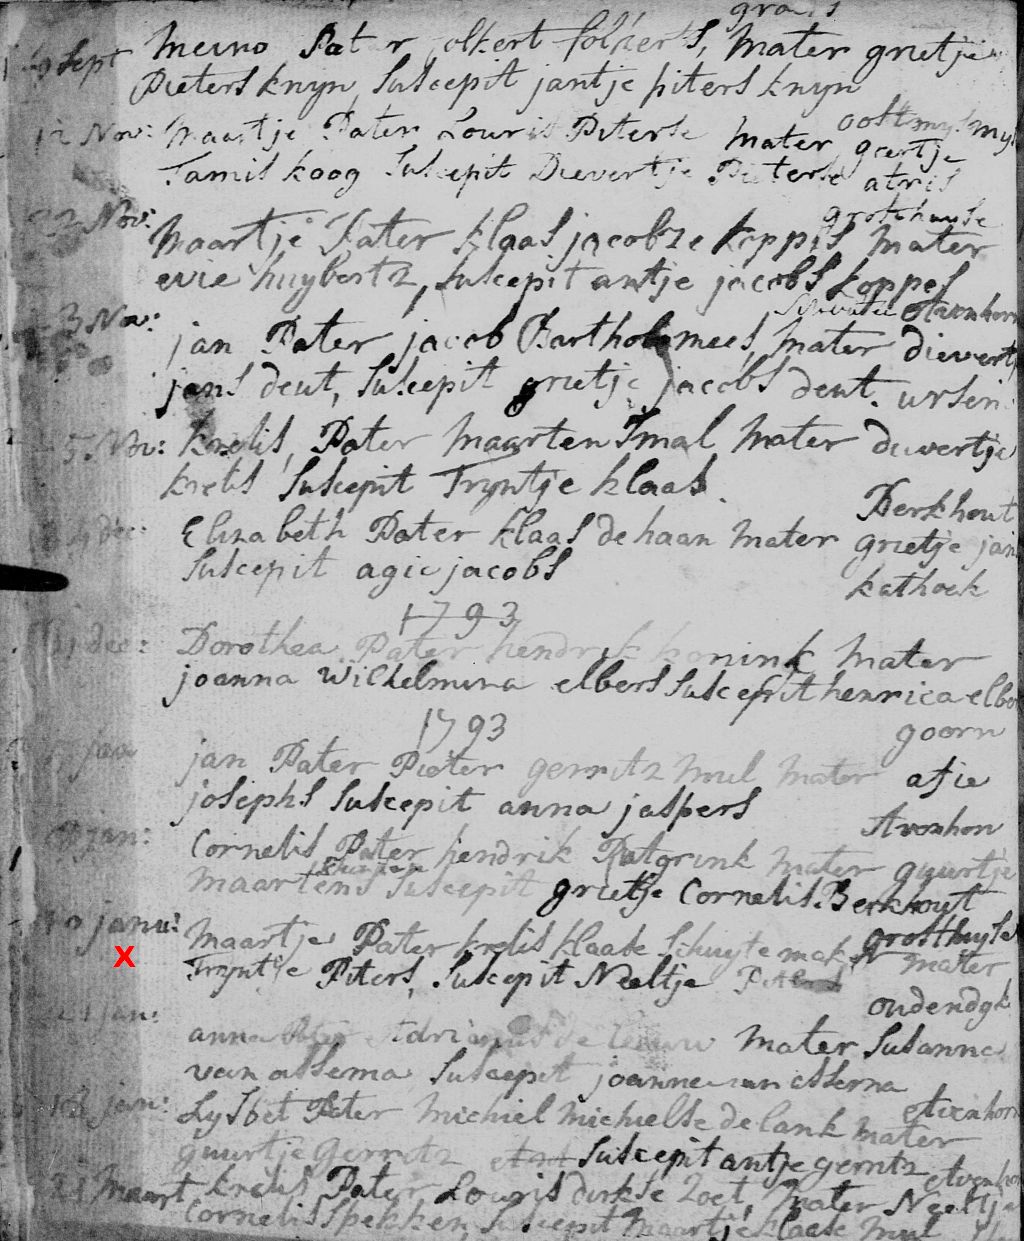 grais
9 Sept Meino Pater folkert folkerts, Mater grietje
Pieters knyn, Suscepit jantje piters knyn
12 Nov: Maartje Pater Louris Piterse Mater geertje
Tamis koog Suscepit Dievertje Pieterse
grosthuyse
22 Nov: Maartje Pater klaas jacobze koppis Mater
evie huybertz, Suscepit antje jacobs koppes
Avenhorn
23 Nov: jan Pater jacob Bartholomees, Mater dievertje
jans deut, Suscepit grietje jacobs deut. ursem
25 Nov: krelis, Pater Maarten Smal Mater duvertje
krelis Suscepit Tryntje klaas.
Berkhout
dec: Elisabeth Pater klaas de haan Mater grietje jan
Suscepit agie jacobs kathoek
1793
dec: Dorothea Pater hendrik konink Mater
joanna Wilhelmina elbers Suscepit henrica elbers
1793 goorn
jan jan Pater Pieter gerritz Mul Mater afie
josephs Suscepit anna jaspers
Avenhon
jan: Cornelis Pater hendrik Ratgrink Mater guurtje
Maartens Suscepit grietje Cornelis. Berkhout
10 janu: Maartje Pater krelis klaase Schuytemaker Mater grosthuyse
X
Tryntje Piters, Suscepit Neeltje Piters
oudendyk
21 jan: anna Pater Adrianus de leeuw Mater Susanna
van assema Suscepit joanne van assema
Avenhorn
jan: Lysbet Pater Michiel Michielse de lank Mater
guurtje gerritz Suscepit antje gerritz
Avenhorn
21 Maart krelis Pater Louris dirkse Zoet, Mater Neeltje
Cornelis Spekken, Suscepit Maartje klaase Mul